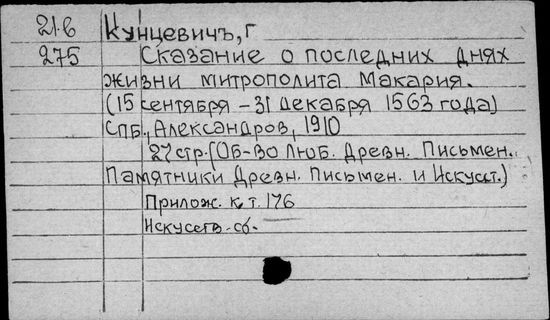 21.6 Кунцевичъ, Г
275 Сказание о последних днях
жизни митрополита Макария.
(15 сентября – 31 декабря 1563 года)
СПб., Александров, 1910
27 стр. (Об-во Люб. Древн. Письмен.
Памятники Древн. Письмен. и Искусст.)
Прилож. к т. 176
Искусств.-сб.